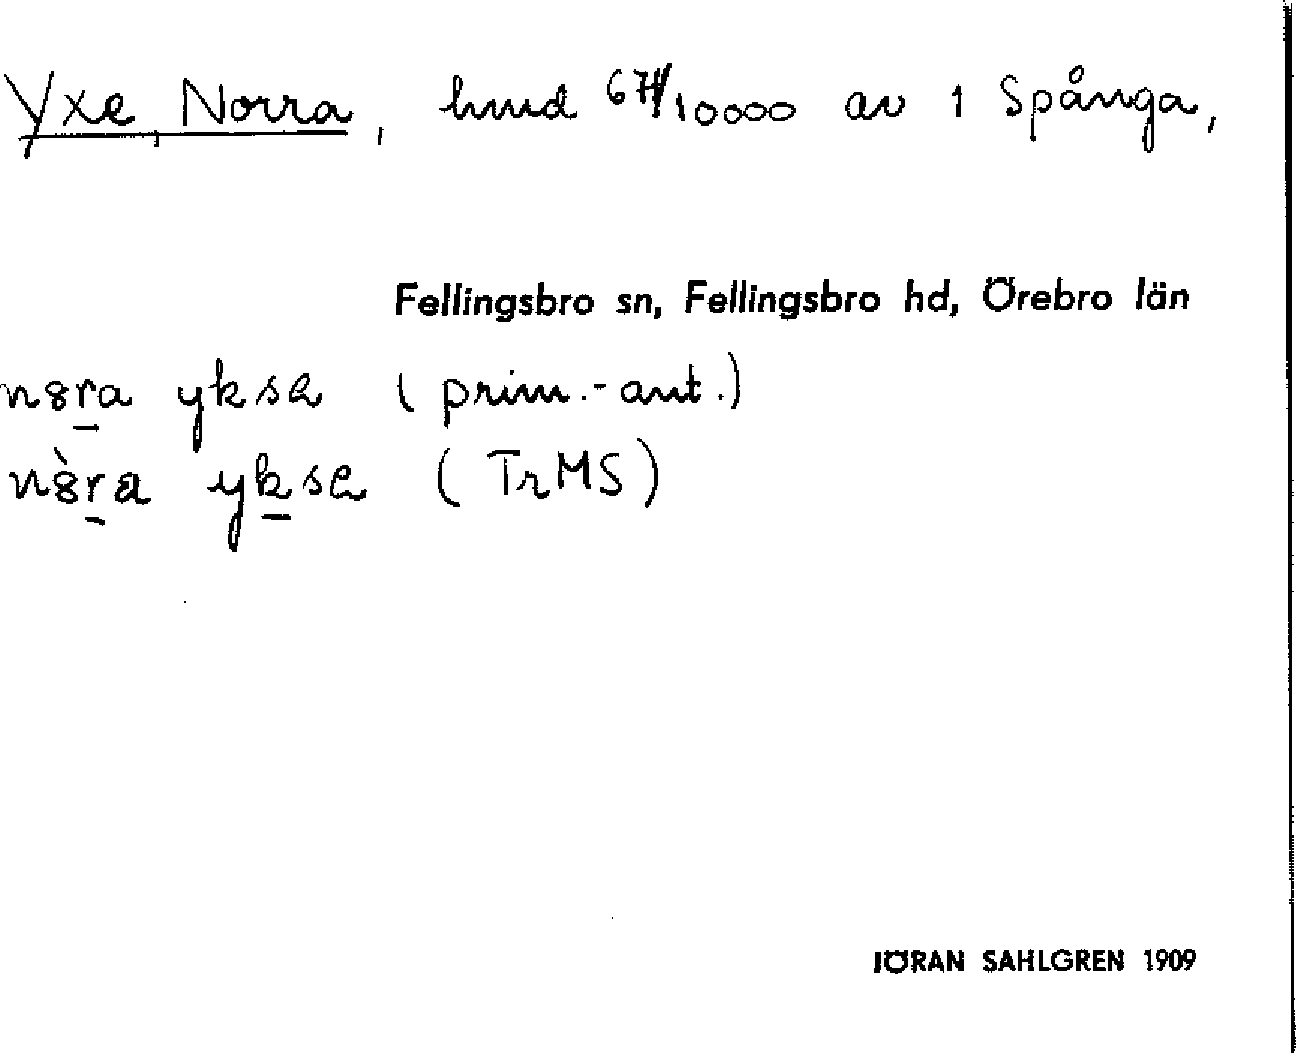 Yxe, Norra, hmd 674/10000 av 1 Spånga,
Fellingsbro sn, Fellingsbro hd, Örebro län
n8r̲a yksa (prim.-ant.)
n8̀r̲a yk̲sa (TrMS)
JÖRAN SAHLGREN 1909